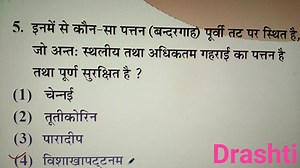 5. इनमें से कौन-सा पत्तन (बन्दरगाह) पूर्वी तट पर स्थित है,
जो अन्तः स्थलीय तथा अधिकतम गहराई का पत्तन है
तथा पूर्ण सुरक्षित है ?
(1) चेन्नई
(2) तूतीकोरिन
(3) पारादीप
(4) विशाखापट्टनम
Drashti